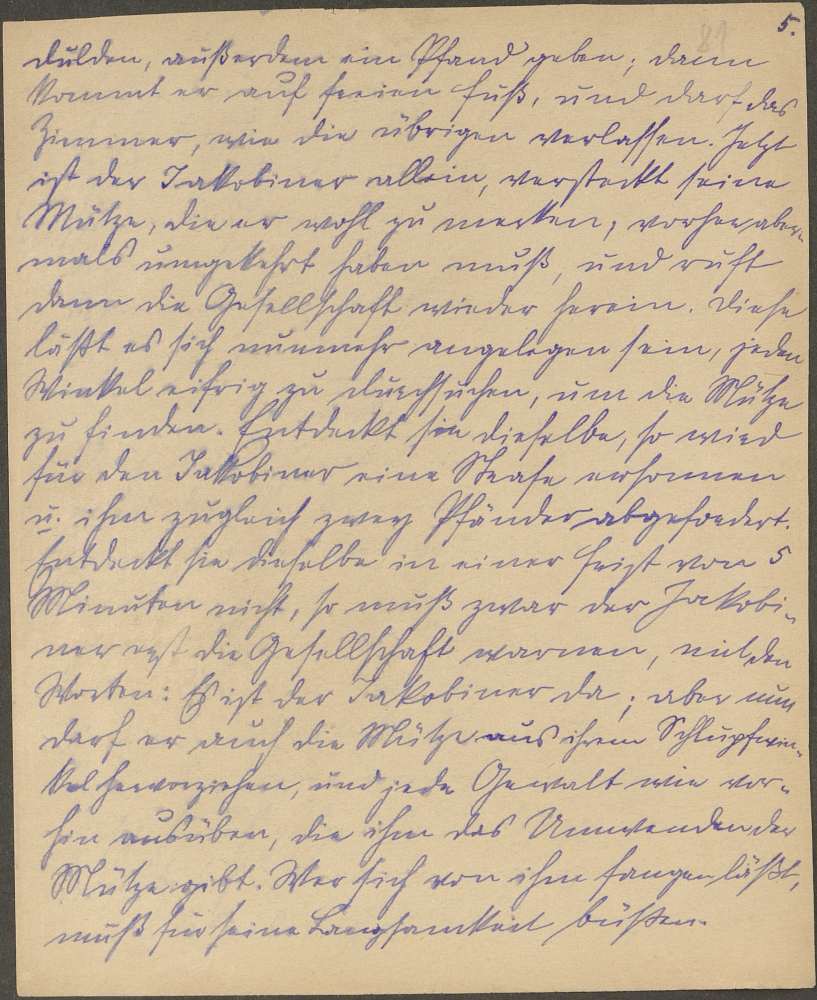 81
5.
dulden, außerdem ein Pfand geben; dann
kommt er auf freien Fuß, und darf das
Zimmer, wie die übrigen verlassen. Jetzt
ist der Jakobiner allein, versteckt seine
Mütze, die er wohl zu merken, vorher aber-
mals umgekehrt haben muß, und ruft
dann die Gesellschaft wieder herein. Diese
läßt es sich nunmehr angelegen sein, jeden
Winkel eifrig zu durchsuchen, um die Mütze
zu finden. Entdeckt sie dieselbe, so wird
für den Jakobiner eine Strafe ersonnen
u. ihm zugleich zwey Pfänder abgefordert.
Entdeckt sie dieselbe in einer Frist von 5
Minuten nicht, so muß zwar der Jakobi-
ner erst die Gesellschaft warnen, mit den
Worten: Es ist der Jakobiner da; aber nun
darf er auch die Mütze aus ihrem Schlupfwin-
kel hervorziehen, und jede Gewalt wie vor-
hin ausüben, die ihm das Umwenden der
Mütze gibt. Wer sich von ihm fangen läßt,
muß für seine Langsamkeit büßen.